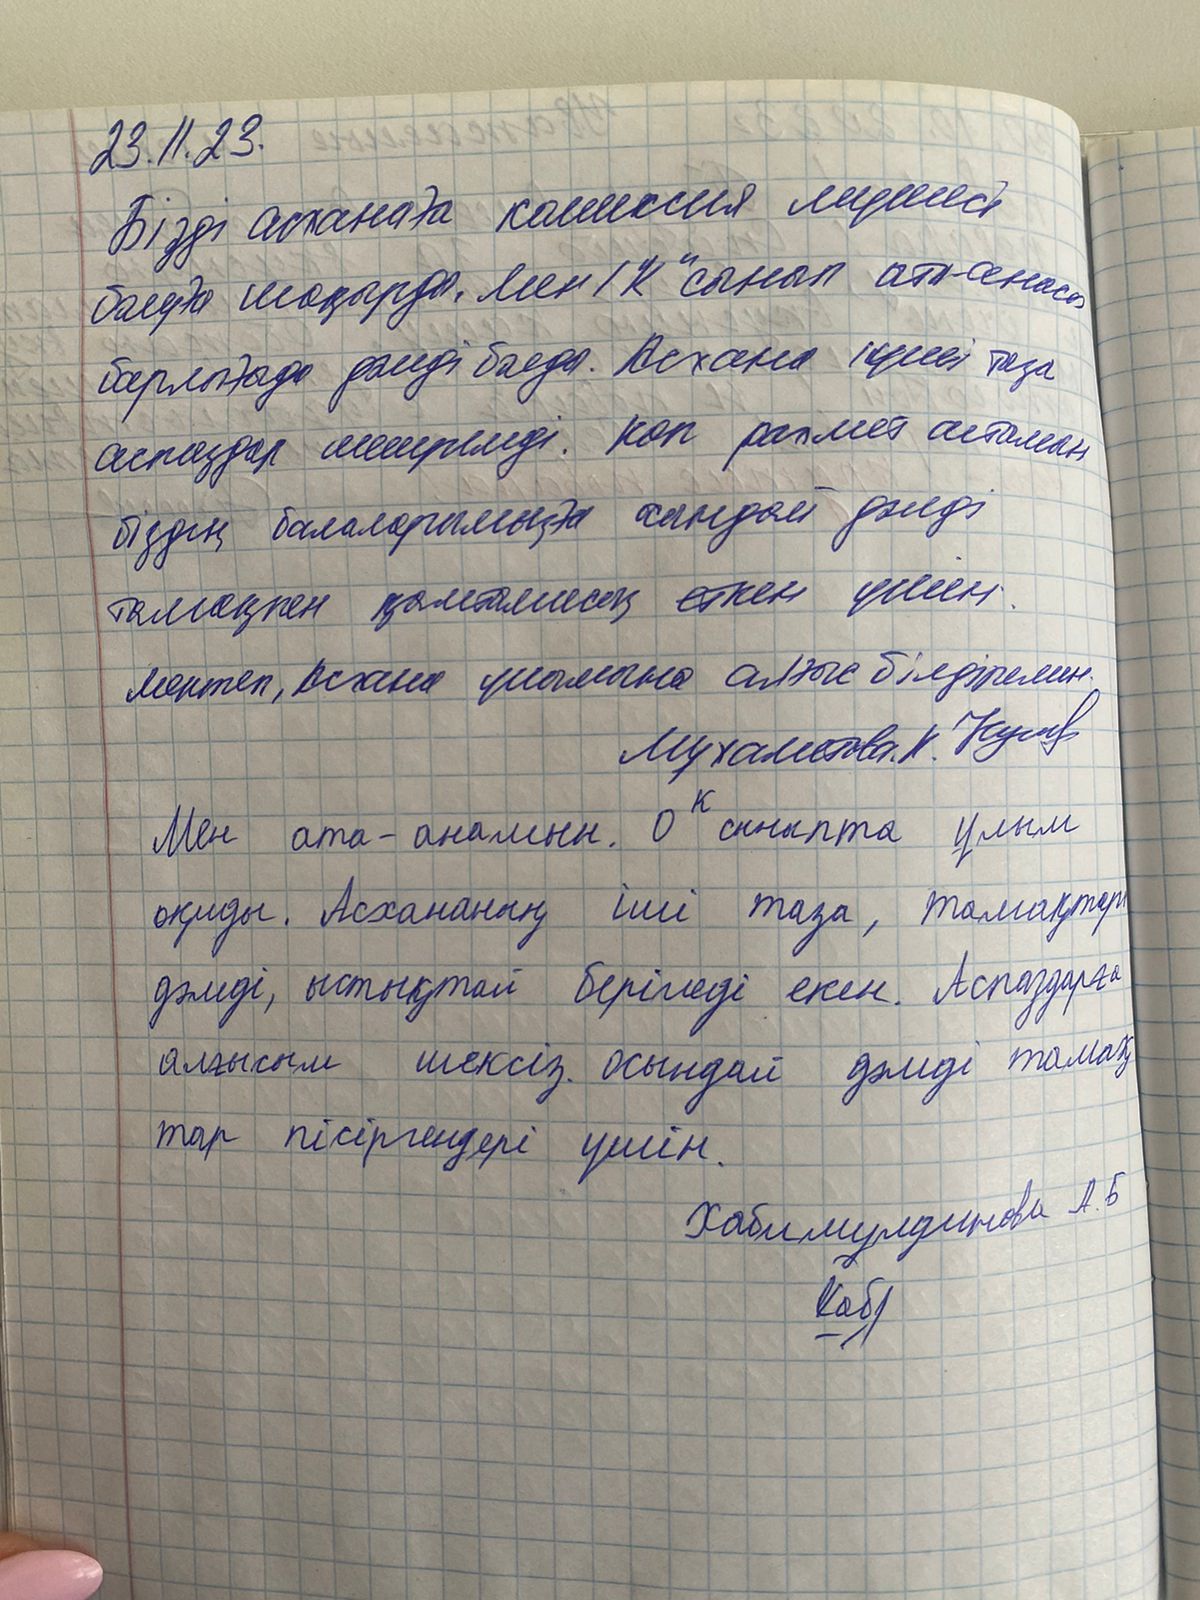 23.11.23.
Бізді асханаға комиссия мүшесі
болуға шақырды. Мен 1 "К" сынып ата-анасы
барлығыда дәмді болды. Асхана іүші таза
аспаздар мейрімді. Көп рахмет айтамын
біздің балаларымызға сондай дәмді
тамақпен қамтамасыз еткен үшін.
Мектеп, Асхана ұжымына алғыс білдіремін.
Мухаметова.К.
Мен ата-анамын. 0 К сыныпта ұлым
оқиды. Асхананың іші таза, тамақтары
дәмді, ыстықтай беріледі екен. Аспаздарға
алғысым шексіз. Осындай дәмді тамақ
тар пісіргендері үшін.
Хабимулдинова А.Б